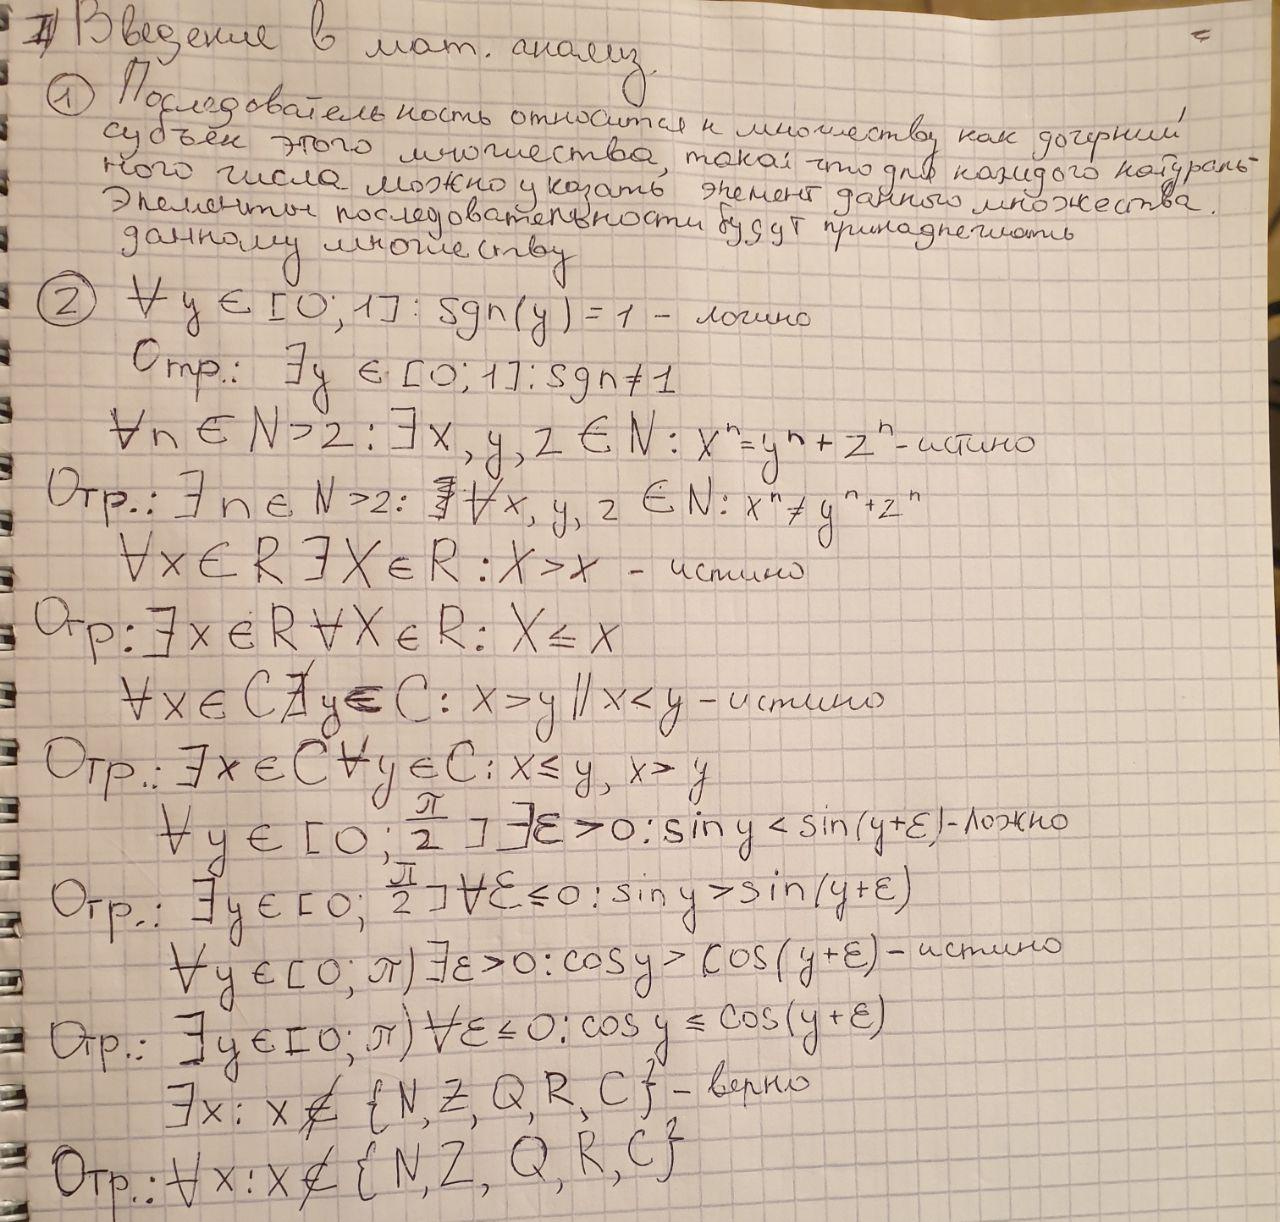 I) Введение в мат. анализ.
① Последовательность относится к множеству как дочерний
субъек этого множества, такая что для каждого натураль-
ного числа можно указать элемент данного множества.
Элементы последовательности будут принадлежать
данному множеству
② ∀y ∈ [0; 1]: sgn(y) = 1 - ложно
Отр.: ∃y ∈ [0; 1]: sgn ≠ 1
∀n ∈ N > 2: ∃x, y, z ∈ N: xⁿ = yⁿ + zⁿ - истино
Отр.: ∃n ∈ N > 2: ∀x, y, z ∈ N: xⁿ ≠ yⁿ + zⁿ
∀x ∈ R ∃X ∈ R : X > x - истино
Отр: ∃x ∈ R ∀X ∈ R: X ≤ x
∀x ∈ C ∄y ∈ C: x > y || x < y - истино
Отр.: ∃x ∈ C ∀y ∈ C: x ≤ y, x > y
∀y ∈ [0; π/2] ∃ε > 0: sin y < sin(y+ε) - ложно
Отр.: ∃y ∈ [0; π/2] ∀ε ≤ 0: sin y > sin(y+ε)
∀y ∈ [0; π) ∃ε > 0: cos y > cos(y+ε) - истино
Отр.: ∃y ∈ [0; π) ∀ε ≤ 0: cos y ≤ cos(y+ε)
∃x: x ∉ {N, Z, Q, R, C} - верно
Отр.: ∀x: x ∉ {N, Z, Q, R, C}